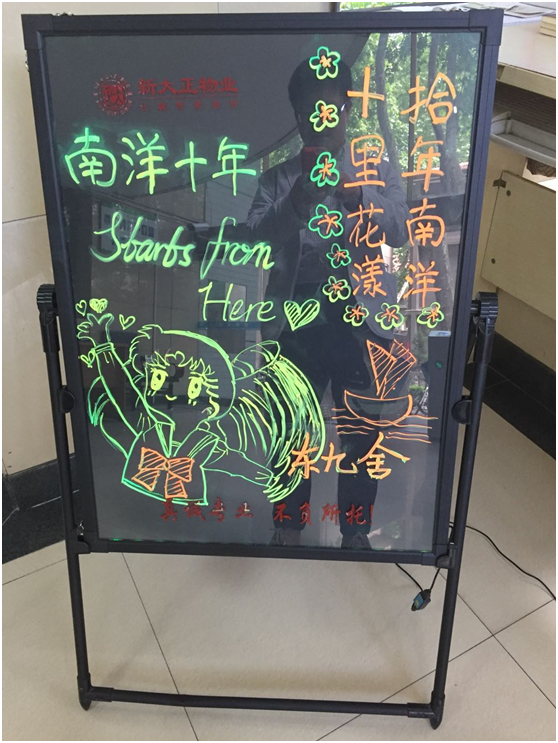 新大正物业
南洋十年
Starts from
Here
拾年南洋
十里花漾
东九舍
真诚专业 不负所托!